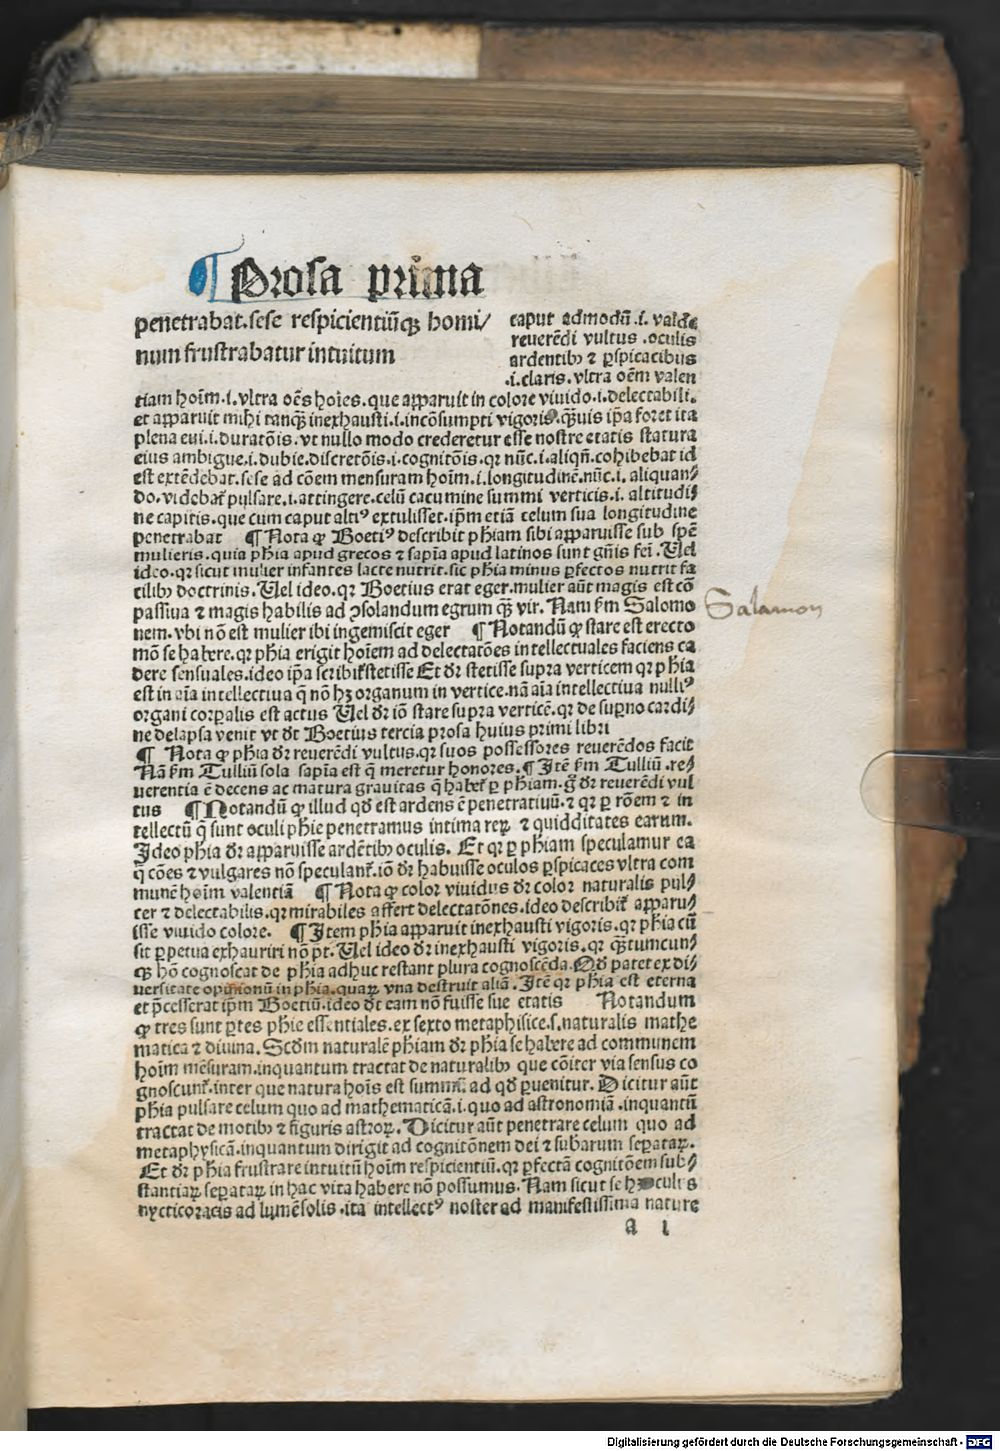 ¶ Prosa prima
penetrabat.sese respicientiũqꝫ homi/
num frustrabatur intuitum
caput admodũ .i. valde
reuerẽdi vultus .oculis
ardentibꝰ ⁊ ꝑspicacibus
.i.claris.vltra oẽm valen
tiam hoĩm.i.vltra oẽs hoĩes.que apparuit in colore viuido.i.delectabili.
et apparuit mihi tanqꝫ inexhausti.i.incõsumpti vigoris.qꝫuis ip̃a foret ita
plena eui.i.duratõis.vt nullo modo crederetur esse nostre etatis statura
eius ambigue.i.dubie.discretõis.i.cognitõis.qꝛ nũc.i.aliqñ.cohibebat id
est extẽdebat.sese ad cõem mensuram hoĩm.i.longitudinẽ.nũc.i. aliquan⸗
do.videbat̃ pulsare.i.attingere.celũ cacumine summi verticis.i. altitudi⸗
ne capitis.que cum caput altiꝰ extulisset.ip̃m etiã celum sua longitudine
penetrabat ¶ Nota ꝙ Boetiꝰ describit ph̃iam sibi apparuisse sub spẽ
mulieris.quia ph̃ia apud grecos ⁊ sapĩa apud latinos sunt gñis fei .Uel
ideo.qꝛ sicut mulier infantes lacte nutrit.sic ph̃ia minus ꝑfectos nutrit fa
cilibꝰ doctrinis.Uel ideo.qꝛ Boetius erat eger.mulier aũt magis est cõ
passiua ⁊ magis habilis ad ꝯsolandum egrum qꝫ vir. Nam ẜm Salomo
nem.vbi nõ est mulier ibi ingemiscit eger ¶ Notandũ ꝙ stare est erecto
mõ se habere.qꝛ ph̃ia erigit hoĩem ad delectatões intellectuales faciens ca
dere sensuales.ideo ip̃a scribit̃ stetisse Et dr̃ stetisse supra verticem qꝛ ph̃ia
est in aĩa intellectiua q̃ nõ hꝫ organum in vertice.nã aĩa intellectiua nulliꝰ
organi corꝑalis est actus Uel dr̃ iõ stare supra verticẽ.qꝛ de suꝑno cardi⸗
ne delapsa venit vt dt̃ Boetius tercia prosa huius primi libri
¶ Nota ꝙ ph̃ia dr̃ reuerẽdi vultus.qꝛ suos possessores reuerẽdos facit
Nã ẜm Tulliũ sola sapĩa est q̃ meretur honores.¶ Itẽ ẜm Tulliũ .re⸗
uerentia ẽ decens ac matura grauitas q̃ habet̃ ꝑ ph̃iam.g̃ dr̃ reuerẽdi vul
tus ¶ Notandũ ꝙ illud qđ est ardens ẽ penetratiuũ.⁊ qꝛ ꝑ rõem ⁊ in
tellectũ q̃ sunt oculi ph̃ie penetramus intima reꝝ ⁊ quidditates earum.
Ideo ph̃ia dr̃ apparuisse ardẽtibꝰ oculis. Et qꝛ ꝑ ph̃iam speculamur ea
q̃ cões ⁊ vulgares nõ speculant̃.iõ dr̃ habuisse oculos ꝑspicaces vltra com
munẽ hoĩm valentiã ¶ Nota ꝙ color viuidus dr̃ color naturalis pul⸗
cer ⁊ delectabilis.qꝛ mirabiles affert delectatões.ideo describit̃ apparu⸗
isse viuido colore. ¶ Item ph̃ia apparuit inexhausti vigoris.qꝛ ph̃ia cũ
sit ꝑpetua exhauriri nõ pt̃.Uel ideo dr̃ inexhausti vigoris.qꝛ qꝫtumcun⸗
qꝫ hõ cognoscat de ph̃ia adhuc restant plura cognoscẽda.Qđ patet ex di⸗
uersitate opinionũ in ph̃ia.quaꝝ vna destruit aliã.Itẽ qꝛ ph̃ia est eterna
et p̃cesserat ip̃m Boetiũ.ideo dt̃ eam nõ fuisse sue etatis Notandum
ꝙ tres sunt ꝑtes ph̃ie essentiales.ex sexto metaphisice.s.naturalis mathe
matica ⁊ diuina.Scđm naturalẽ ph̃iam dr̃ ph̃ia se habere ad communem
hoĩm mẽsuram.inquantum tractat de naturalibꝰ que cõiter via sensus co
gnoscunt̃.inter que natura hoĩs est summũ ad qđ ꝑuenitur. Dicitur aũt
ph̃ia pulsare celum quo ad mathematicã.i.quo ad astronomiã .inquantũ
tractat de motibꝰ ⁊ figuris astroꝝ. Dicitur aũt penetrare celum quo ad
metaphysicã.inquantum dirigit ad cognitõnem dei ⁊ subarum seꝑataꝝ.
Et dr̃ ph̃ia frustrare intuitũ hoĩm respicientiũ.qꝛ ꝑfectã cognitõem sub⸗
stantiaꝝ seꝑataꝝ in hac vita habere nõ possumus.Nam sicut se hñt oculi
nycticoracis ad lumẽ solis .ita intellectꝰ noster ad manifestissima nature
a i
Salamon
Digitalisierung gefördert durch die Deutsche Forschungsgemeinschaft - DFG